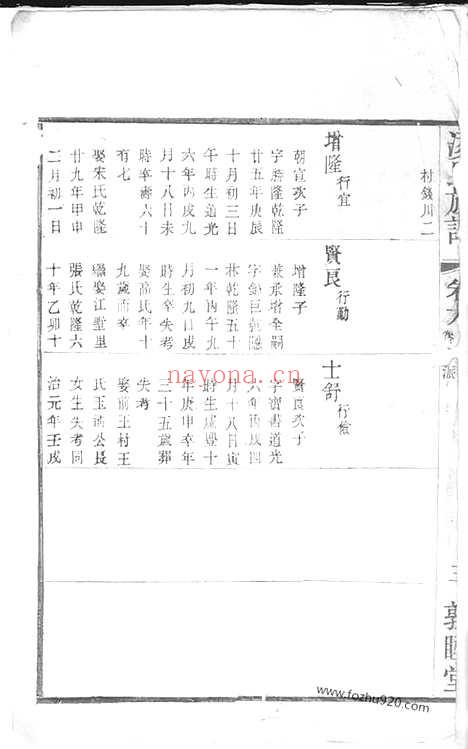 村錢川二
增隆行宜
朝宣次子
字勝隆乾隆
廿五年庚辰
十月初三日
午時生道光
六年丙戌九
月十八日未
時卒壽六十
有七
娶宋氏乾隆
廿九年甲申
二月初一日
賢良行勳
增隆子
兼承增全嗣
字錦巨乾隆
林乾隆五十
一年丙午九
月初九日戌
時生卒失考
娶 氏年十
九歲而卒
繼娶江墅里
張氏乾隆六
十年乙卯十
士舒行儉
賢良次子
字寶書道光
六年丙戌四
月十八日寅
時生咸豐十
年庚申卒年
三十五歲葬
失考
娶前王村王
氏玉 公長
女生失考同
治元年壬戌
族譜
卷
三
敦睦堂
nayona.cn
www.fozhu920.com